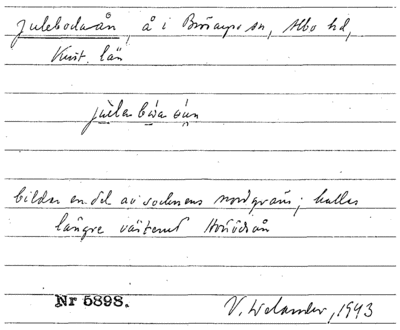 Julebodaån, å i Brösarps sn, Albo hd,
Krist. län
bildar en del av socknens nordgräns; kallas
längre västerut
Nr 5898.
V. Welander, 1943